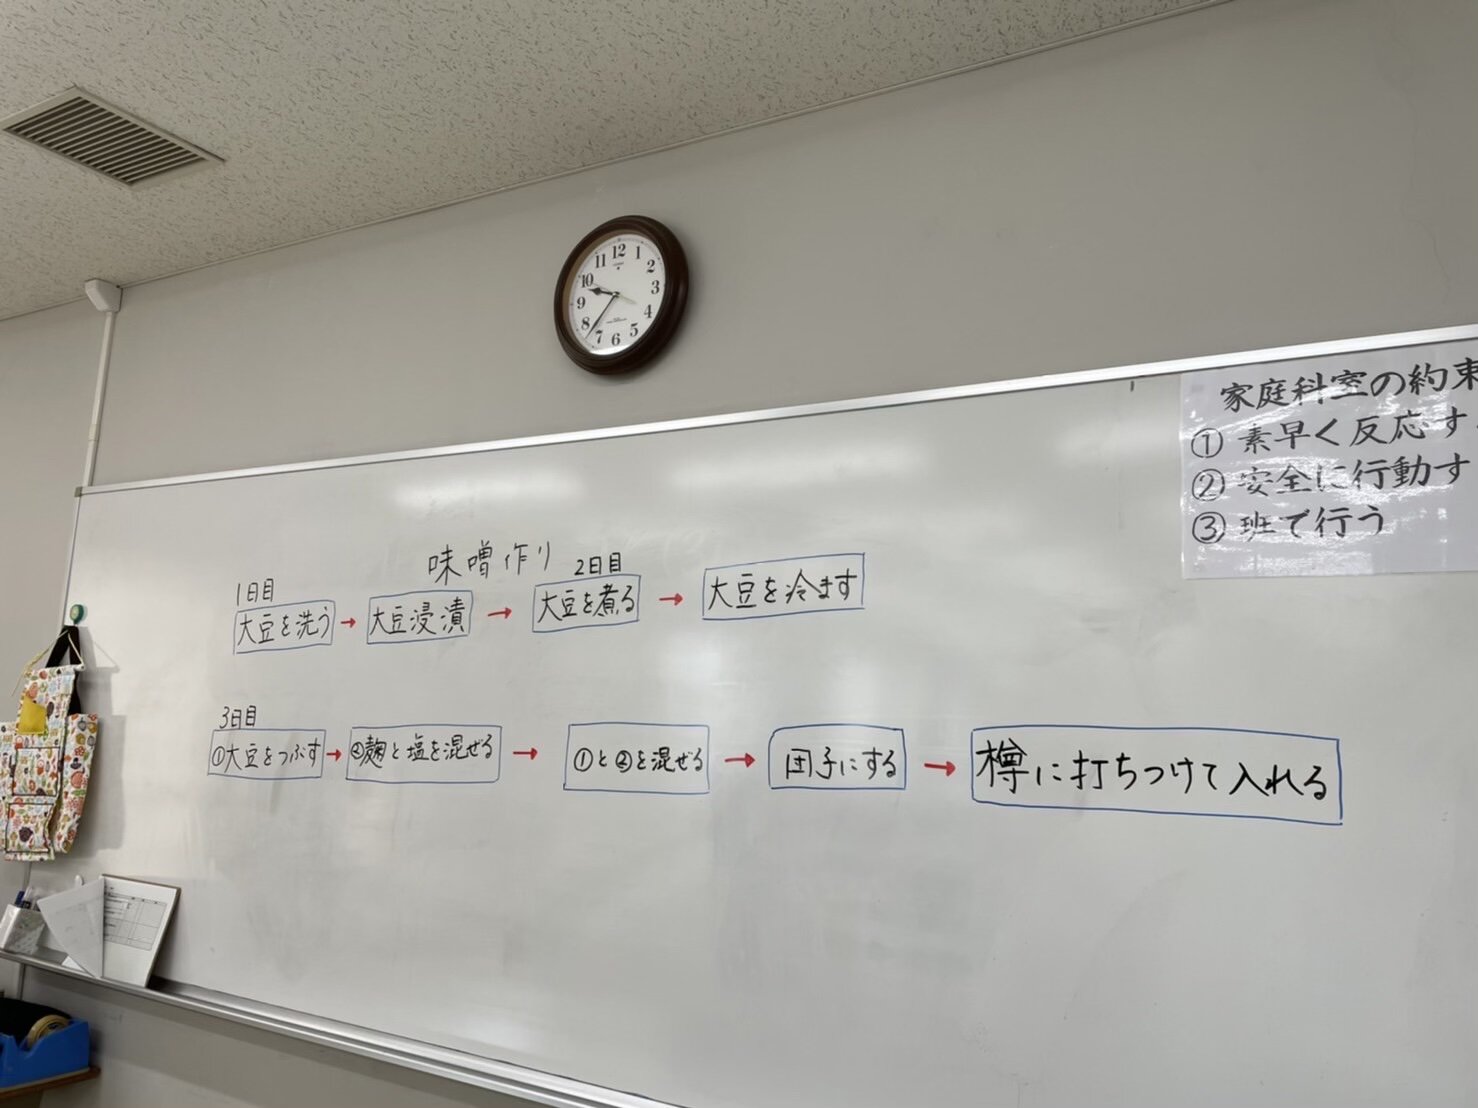 12 1 2 3 4 5 6 7 8 9 10 11
家庭科室の約束
① 素早く反応す
② 安全に行動す
③ 班で行う
味噌作り
1日目
大豆を洗う → 大豆浸漬 →
2日目
大豆を煮る → 大豆を冷ます
3日目
①大豆をつぶす → ②麹と塩を混ぜる → ①と②を混ぜる → 団子にする → 樽に打ちつけて入れる